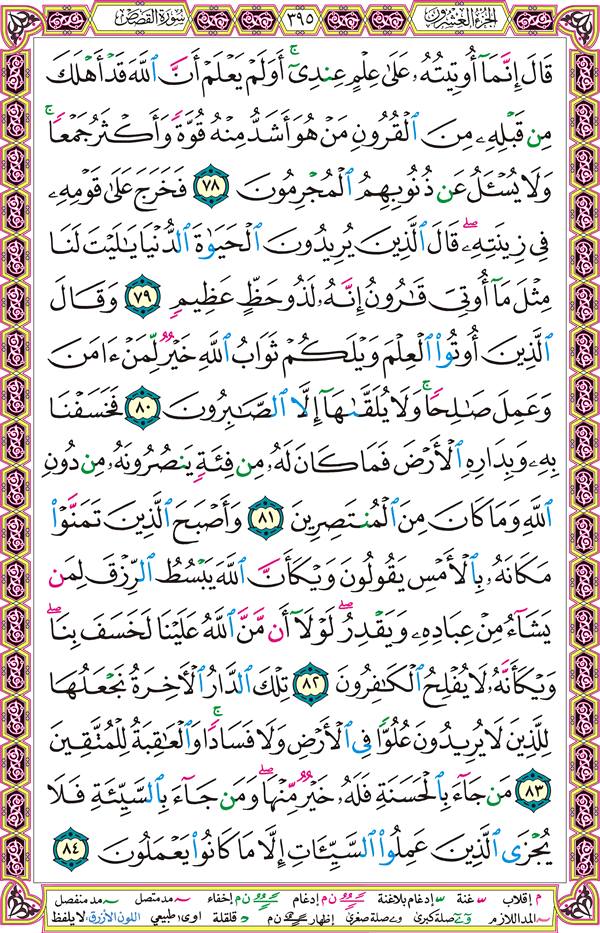 الجزء العشرون ٣٩٥ سورة القصص
قَالَ إِنَّمَآ أُوتِيتُهُۥ عَلَىٰ عِلْمٍ عِندِيٓ ۚ أَوَلَمْ يَعْلَمْ أَنَّ ٱللَّهَ قَدْ أَهْلَكَ
مِن قَبْلِهِۦ مِنَ ٱلْقُرُونِ مَنْ هُوَ أَشَدُّ مِنْهُ قُوَّةً وَأَكْثَرُ جَمْعًا ۚ
وَلَا يُسْـَٔلُ عَن ذُنُوبِهِمُ ٱلْمُجْرِمُونَ ٧٨ فَخَرَجَ عَلَىٰ قَوْمِهِۦ
فِي زِينَتِهِۦ ۖ قَالَ ٱلَّذِينَ يُرِيدُونَ ٱلْحَيَوٰةَ ٱلدُّنْيَا يَٰلَيْتَ لَنَا
مِثْلَ مَآ أُوتِيَ قَٰرُونُ إِنَّهُۥ لَذُو حَظٍّ عَظِيمٍ ٧٩ وَقَالَ
ٱلَّذِينَ أُوتُوا۟ ٱلْعِلْمَ وَيْلَكُمْ ثَوَابُ ٱللَّهِ خَيْرٌ لِّمَنْ ءَامَنَ
وَعَمِلَ صَٰلِحًا ۚ وَلَا يُلَقَّىٰهَآ إِلَّا ٱلصَّٰبِرُونَ ٨٠ فَخَسَفْنَا
بِهِۦ وَبِدَارِهِ ٱلْأَرْضَ فَمَا كَانَ لَهُۥ مِن فِئَةٍ يَنصُرُونَهُۥ مِن دُونِ
ٱللَّهِ وَمَا كَانَ مِنَ ٱلْمُنتَصِرِينَ ٨١ وَأَصْبَحَ ٱلَّذِينَ تَمَنَّوْا۟
مَكَانَهُۥ بِٱلْأَمْسِ يَقُولُونَ وَيْكَأَنَّ ٱللَّهَ يَبْسُطُ ٱلرِّزْقَ لِمَن
يَشَآءُ مِنْ عِبَادِهِۦ وَيَقْدِرُ ۖ لَوْلَآ أَن مَّنَّ ٱللَّهُ عَلَيْنَا لَخَسَفَ بِنَا ۖ
وَيْكَأَنَّهُۥ لَا يُفْلِحُ ٱلْكَٰفِرُونَ ٨٢ تِلْكَ ٱلدَّارُ ٱلْأَخِرَةُ نَجْعَلُهَا
لِلَّذِينَ لَا يُرِيدُونَ عُلُوًّا فِي ٱلْأَرْضِ وَلَا فَسَادًا ۚ وَٱلْعَٰقِبَةُ لِلْمُتَّقِينَ
٨٣ مَن جَآءَ بِٱلْحَسَنَةِ فَلَهُۥ خَيْرٌ مِّنْهَا ۖ وَمَن جَآءَ بِٱلسَّيِّئَةِ فَلَا
يُجْزَى ٱلَّذِينَ عَمِلُوا۟ ٱلسَّيِّـَٔاتِ إِلَّا مَا كَانُوا۟ يَعْمَلُونَ ٨٤
م إقلاب غنة إدغام بلاغنة ن م إدغام ن م إخفاء مد متصل مد منفصل
المد اللازم صلة كبرى صلة صغرى إظهار ن م قلقلة اوى طبيعي اللون الأزرق لا يلفظ